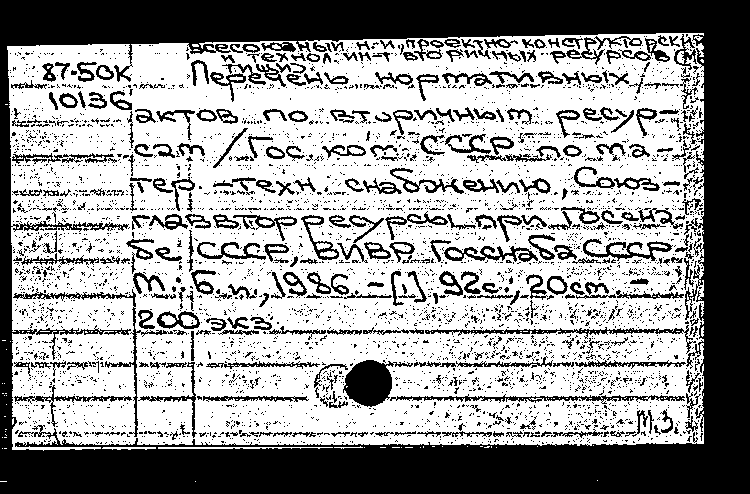 Всесоюзный н.-и., проектно-конструкторский
и технол. ин-т вторичных ресурсов (Мы
тищи)
87-50К Перечень нормативных
10136
актов по вторичным ресур-
сам / Гос. ком. СССР по ма-
тер.-техн. снабжению, Союз-
главвторресурсы при Госсна-
бе СССР, ВИВР Госснаба СССР.-
М.: Б. и., 1986. - [1], 92с.; 20см. -
200 экз.
М.З.